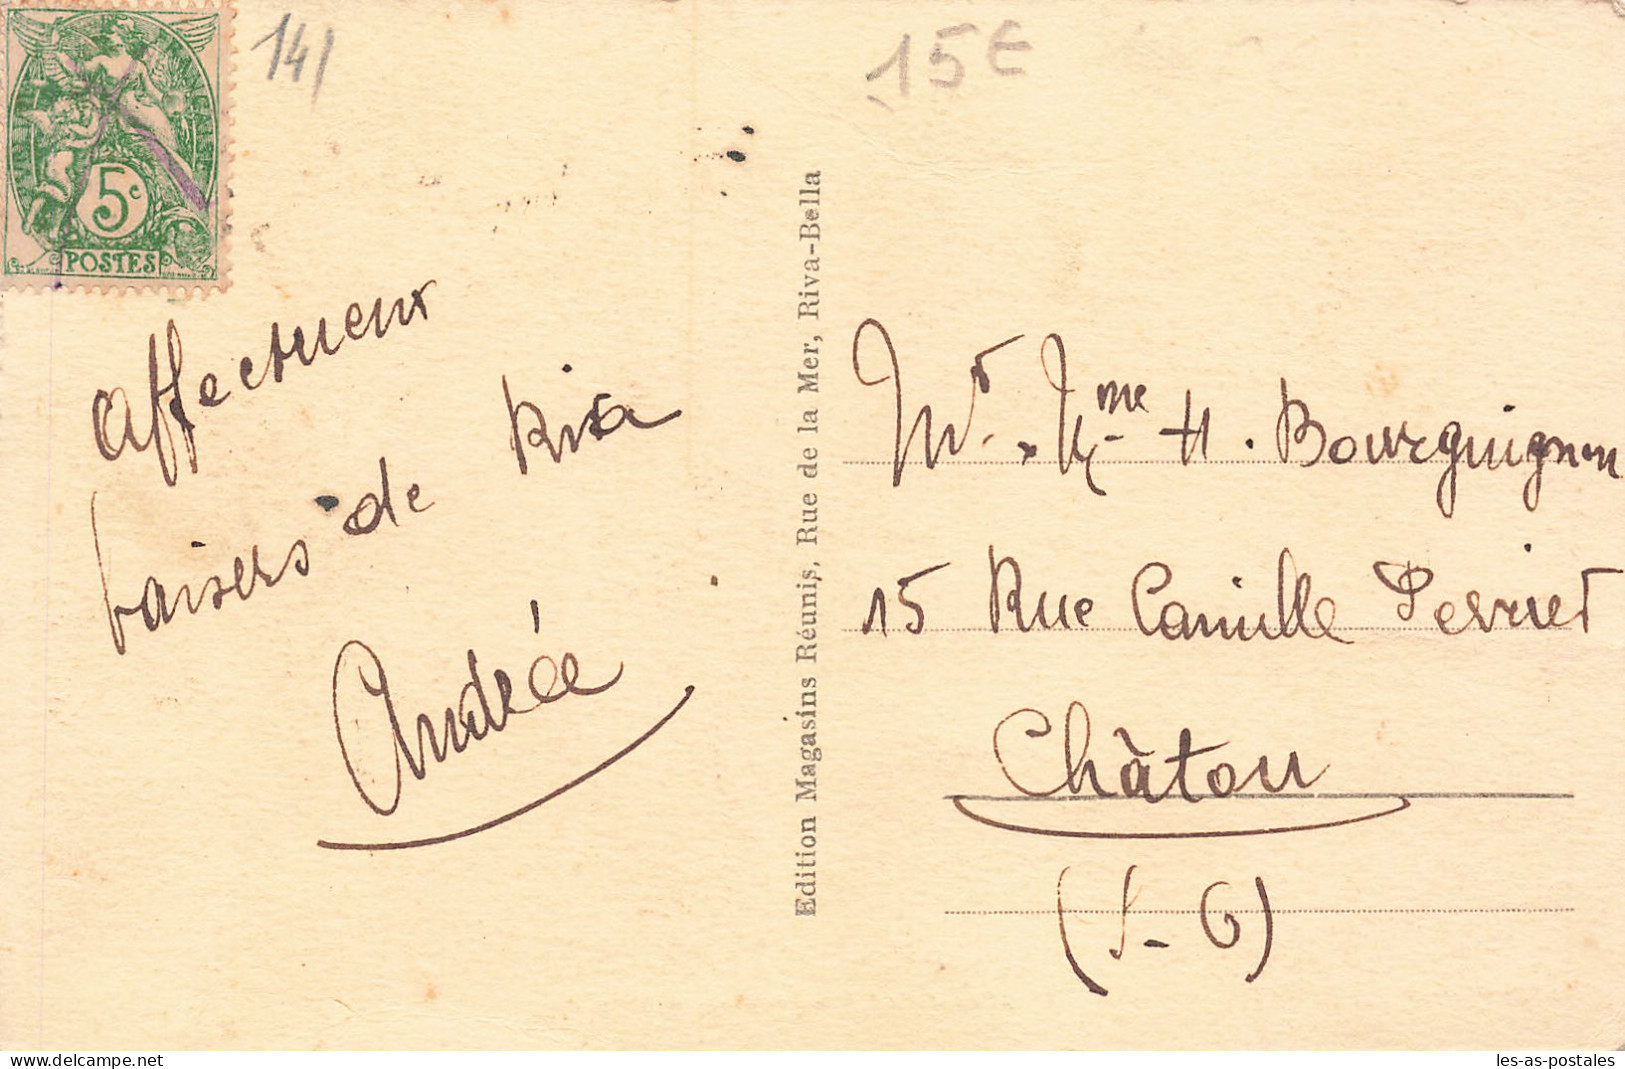 RÉPUBLIQUE FRANÇAISE
5c
POSTES
141
15€
affectueux
baisers de Riva
Andrée
Edition Magasins Réunis, Rue de la Mer, Riva-Bella
Mr. Mme H. Bourguignon
15 Rue Camille Perrier
Châtou
(S-O)
delcampe.net
les-as-postales